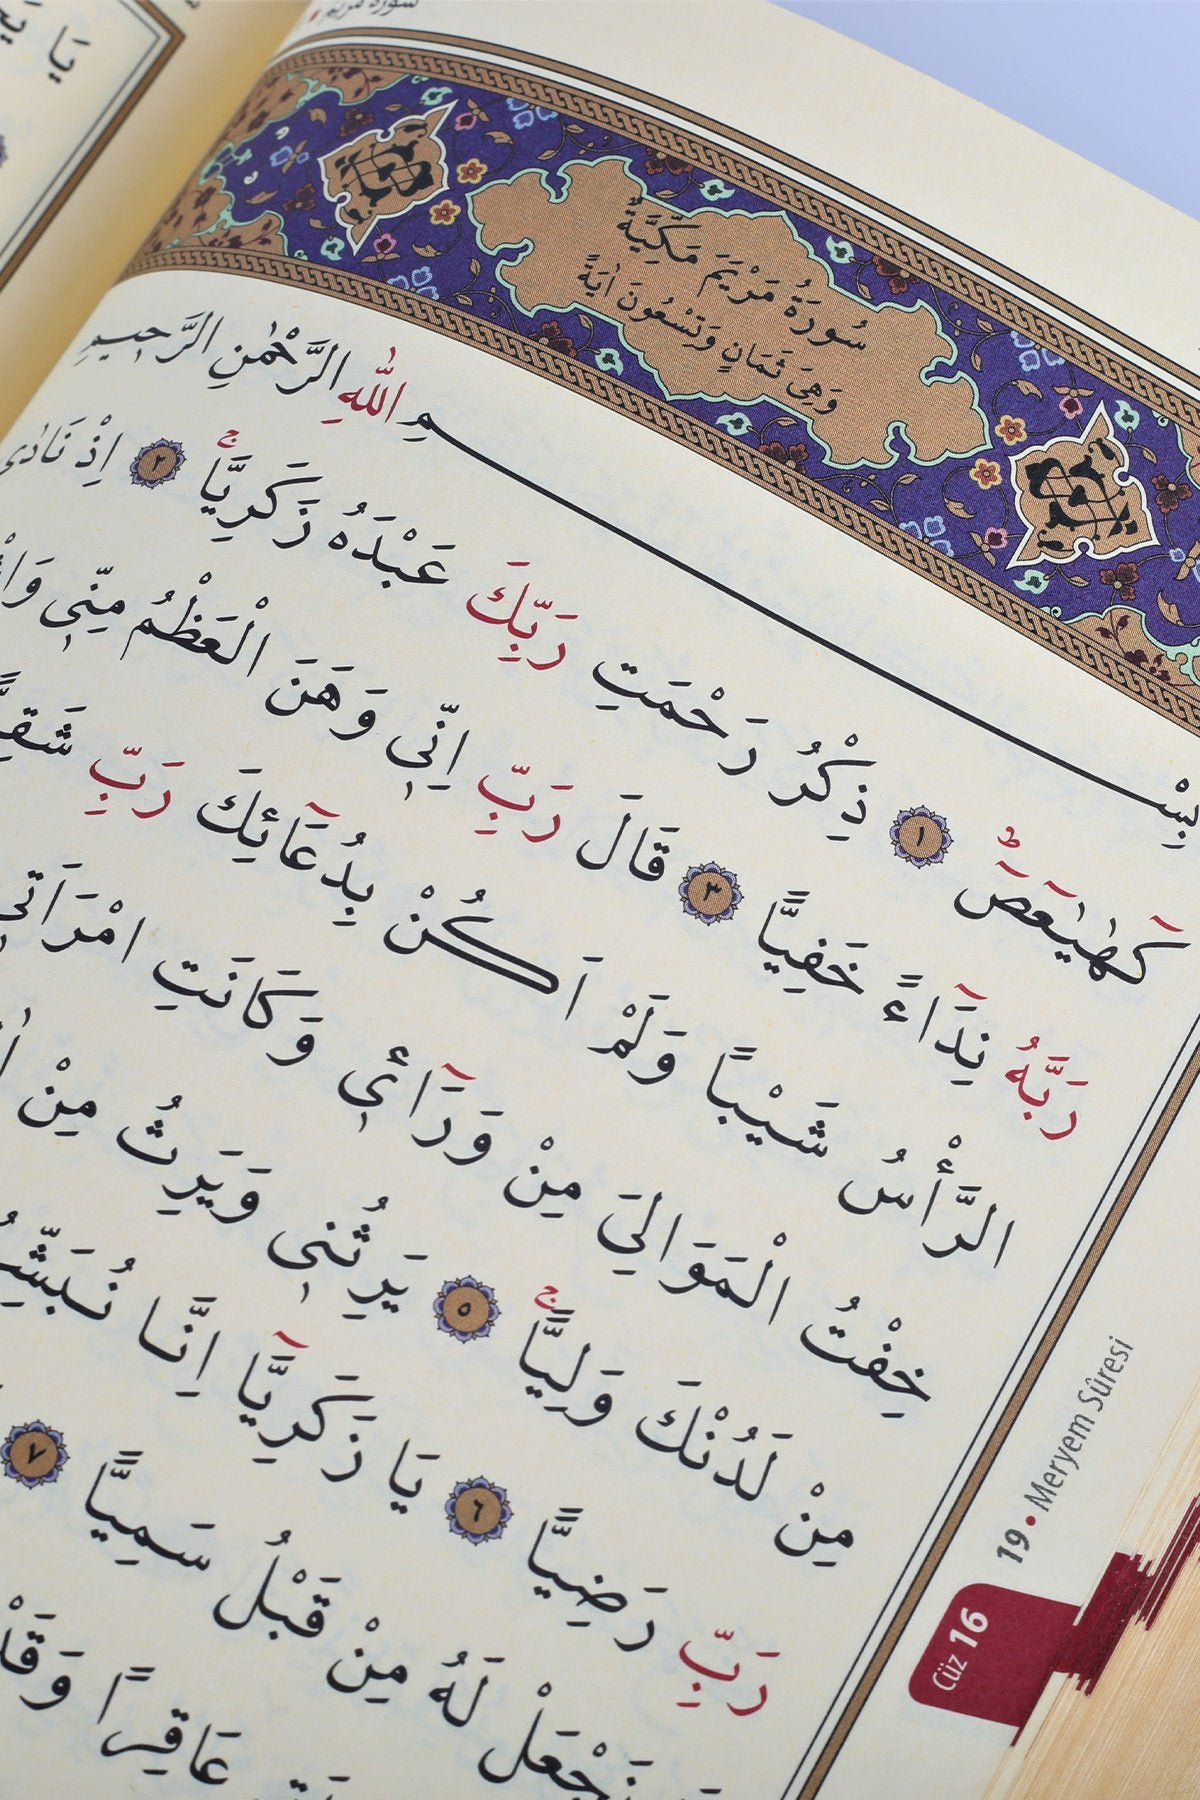 سُورَةُ مَرْيَمَ مَكِّيَّةٌ
وَهِيَ ثَمَانٍ وَتِسْعُونَ اٰيَةً
بِسْمِ اللّٰهِ الرَّحْمٰنِ الرَّحِيمِ
كٓهٰيٰعٓصٓ ﴿١﴾ ذِكْرُ رَحْمَتِ رَبِّكَ عَبْدَهُ زَكَرِيَّاۚ ﴿٢﴾ اِذْ نَادٰى
رَبَّهُ نِدَٓاءً خَفِيًّا ﴿٣﴾ قَالَ رَبِّ اِنّ۪ي وَهَنَ الْعَظْمُ مِنّ۪ي
الرَّأْسُ شَيْبًا وَلَمْ اَكُنْ بِدُعَٓائِكَ رَبِّ
خِفْتُ الْمَوَالِيَ مِنْ وَرَٓاء۪ي وَكَانَتِ امْرَاَت۪ي
مِنْ لَدُنْكَ وَلِيًّاۚ ﴿٥﴾ يَرِثُن۪ي وَيَرِثُ مِنْ
رَبِّ رَضِيًّا ﴿٦﴾ يَا زَكَرِيَّٓا اِنَّا
نَجْعَلْ لَهُ مِنْ قَبْلُ سَمِيًّا ﴿٧﴾
عَاقِرًا وَقَدْ
19 • Meryem Sûresi
Cüz 16